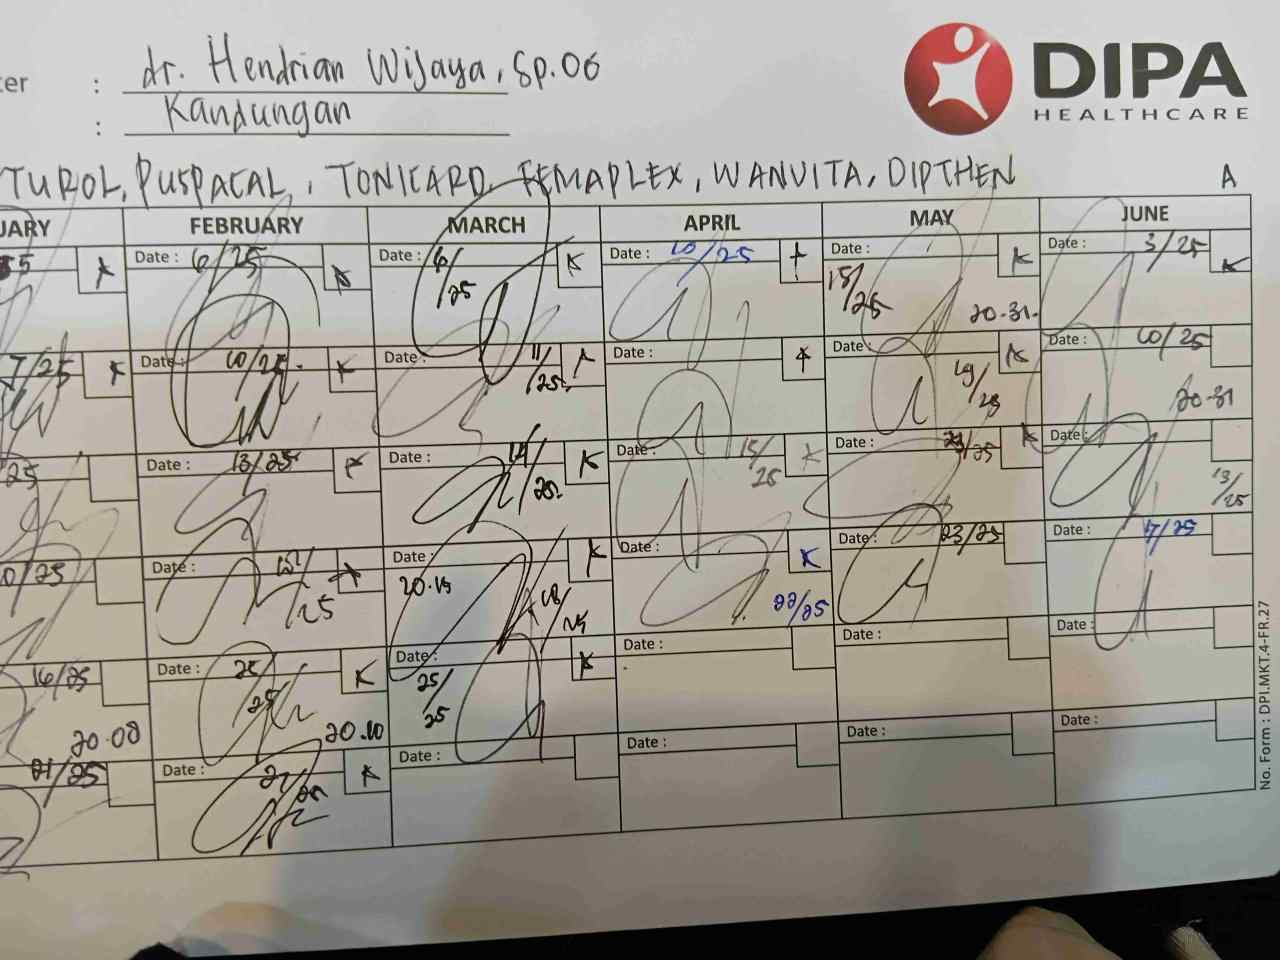 ter : dr. Hendrian Wijaya, Sp.OG
: Kandungan
DIPA
HEALTHCARE
TUROL, PUSPACAL, TONICARD, FEMAPLEX, WANVITA, DIPTHEN A
UARY FEBRUARY MARCH APRIL MAY JUNE
Date : 6/25 K Date : 6/25 K Date : 10/25 Date : 15/25 K 20.31. Date : 3/25 K
7/25 K Date : 10/25. K Date : 11/25. Date : Date : 19/25 K Date : 10/25 20.31
25 Date : 13/25 K Date : 14/25. K Date : 15/25 K Date : /25 K Date : 13/25
0/25 Date : Date : 20.19 18/25 K Date : 22/25 K Date : 23/25 Date : 17/25
16/25 20.08 Date : 25/25 K 20.10 Date : 25/25 K Date : Date : Date :
21/25 Date : K Date : Date : Date : Date :
No. Form : DPI.MKT.4-FR.27